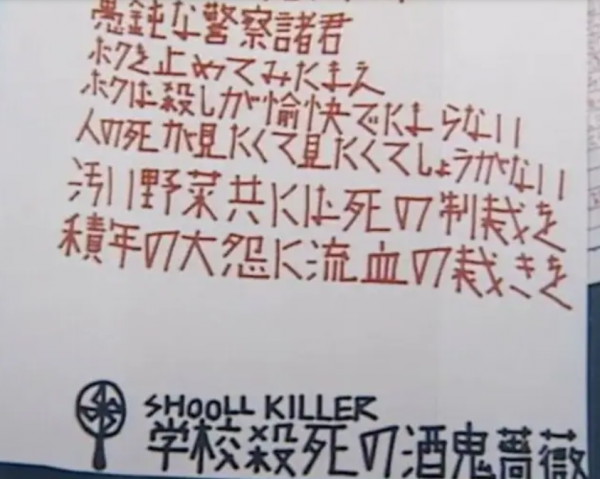 愚鈍な警察諸君
ボクを止めてみたまえ
ボクは殺しが愉快でたまらない
人の死が見たくて見たくてしょうがない
汚い野菜共には死の制裁を
積年の大怨に流血の裁きを
SHOOLL KILLER
学校殺死の酒鬼薔薇